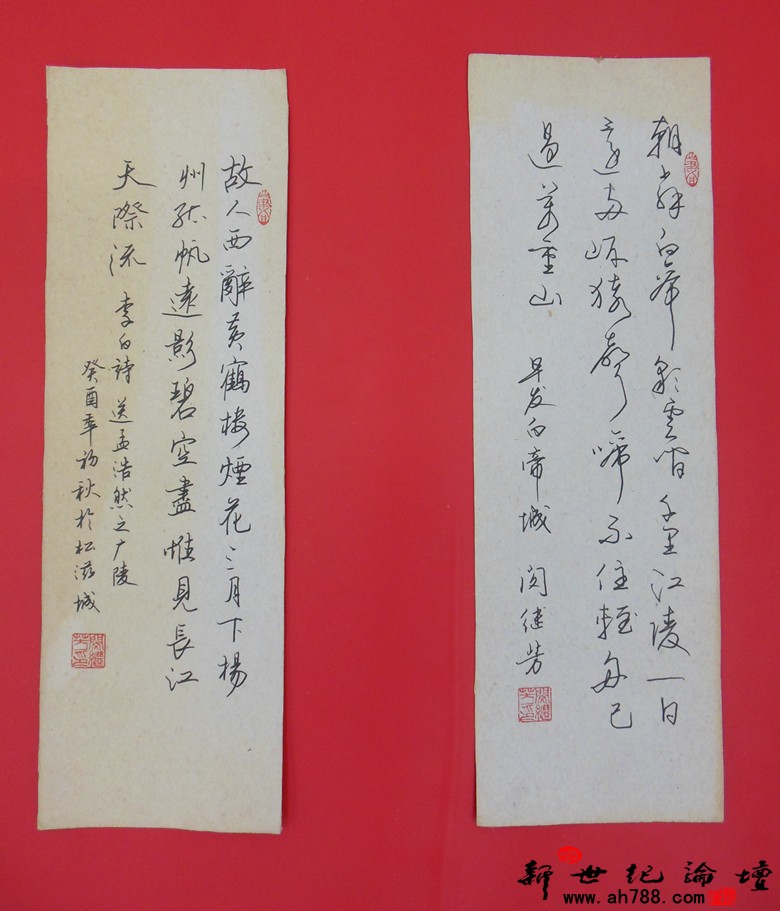 朝辞白帝彩雲间千里江陵一日
還两岸猿聲啼不住輕舟已
過萬重山 早发白帝城 闵继芳
故人西辭黄鶴楼煙花三月下揚
州孤帆遠影碧空盡惟見長江
天際流 李白詩 送孟浩然之广陵
癸酉年初秋於松滋城
新世纪論壇
www.ah788.com